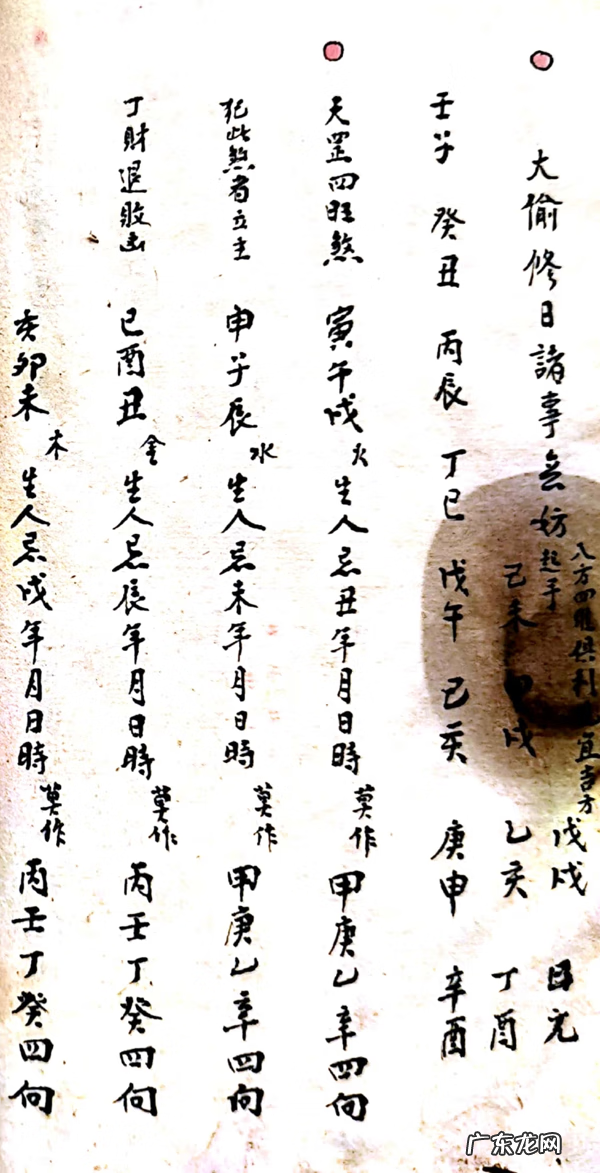 大偷修日諸事無妨
八方四 俱利 宜吉方
起手
戊戌 日完
己未 戌 乙亥 丁酉
壬子 癸丑 丙辰 丁巳 戊午 己亥 庚申 辛酉
天罡四旺煞 寅午戌火生人忌丑年月日時莫作甲庚乙辛四向
犯此煞者立主 申子辰水生人忌未年月日時莫作甲庚乙辛四向
丁財退敗凶 巳酉丑金生人忌辰年月日時莫作丙壬丁癸四向
亥卯未木生人忌戌年月日時莫作丙壬丁癸四向
广东龙网